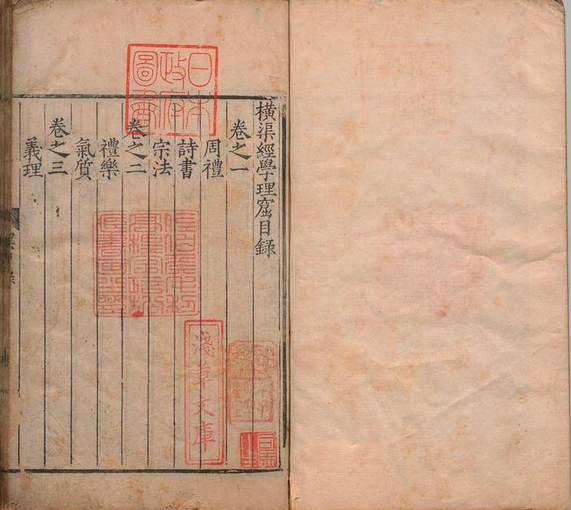 橫渠經學理窟目錄
卷之一
周禮
詩書
宗法
卷之二
禮樂
氣質
卷之三
義理
日本
政府
圖書
淺草文庫